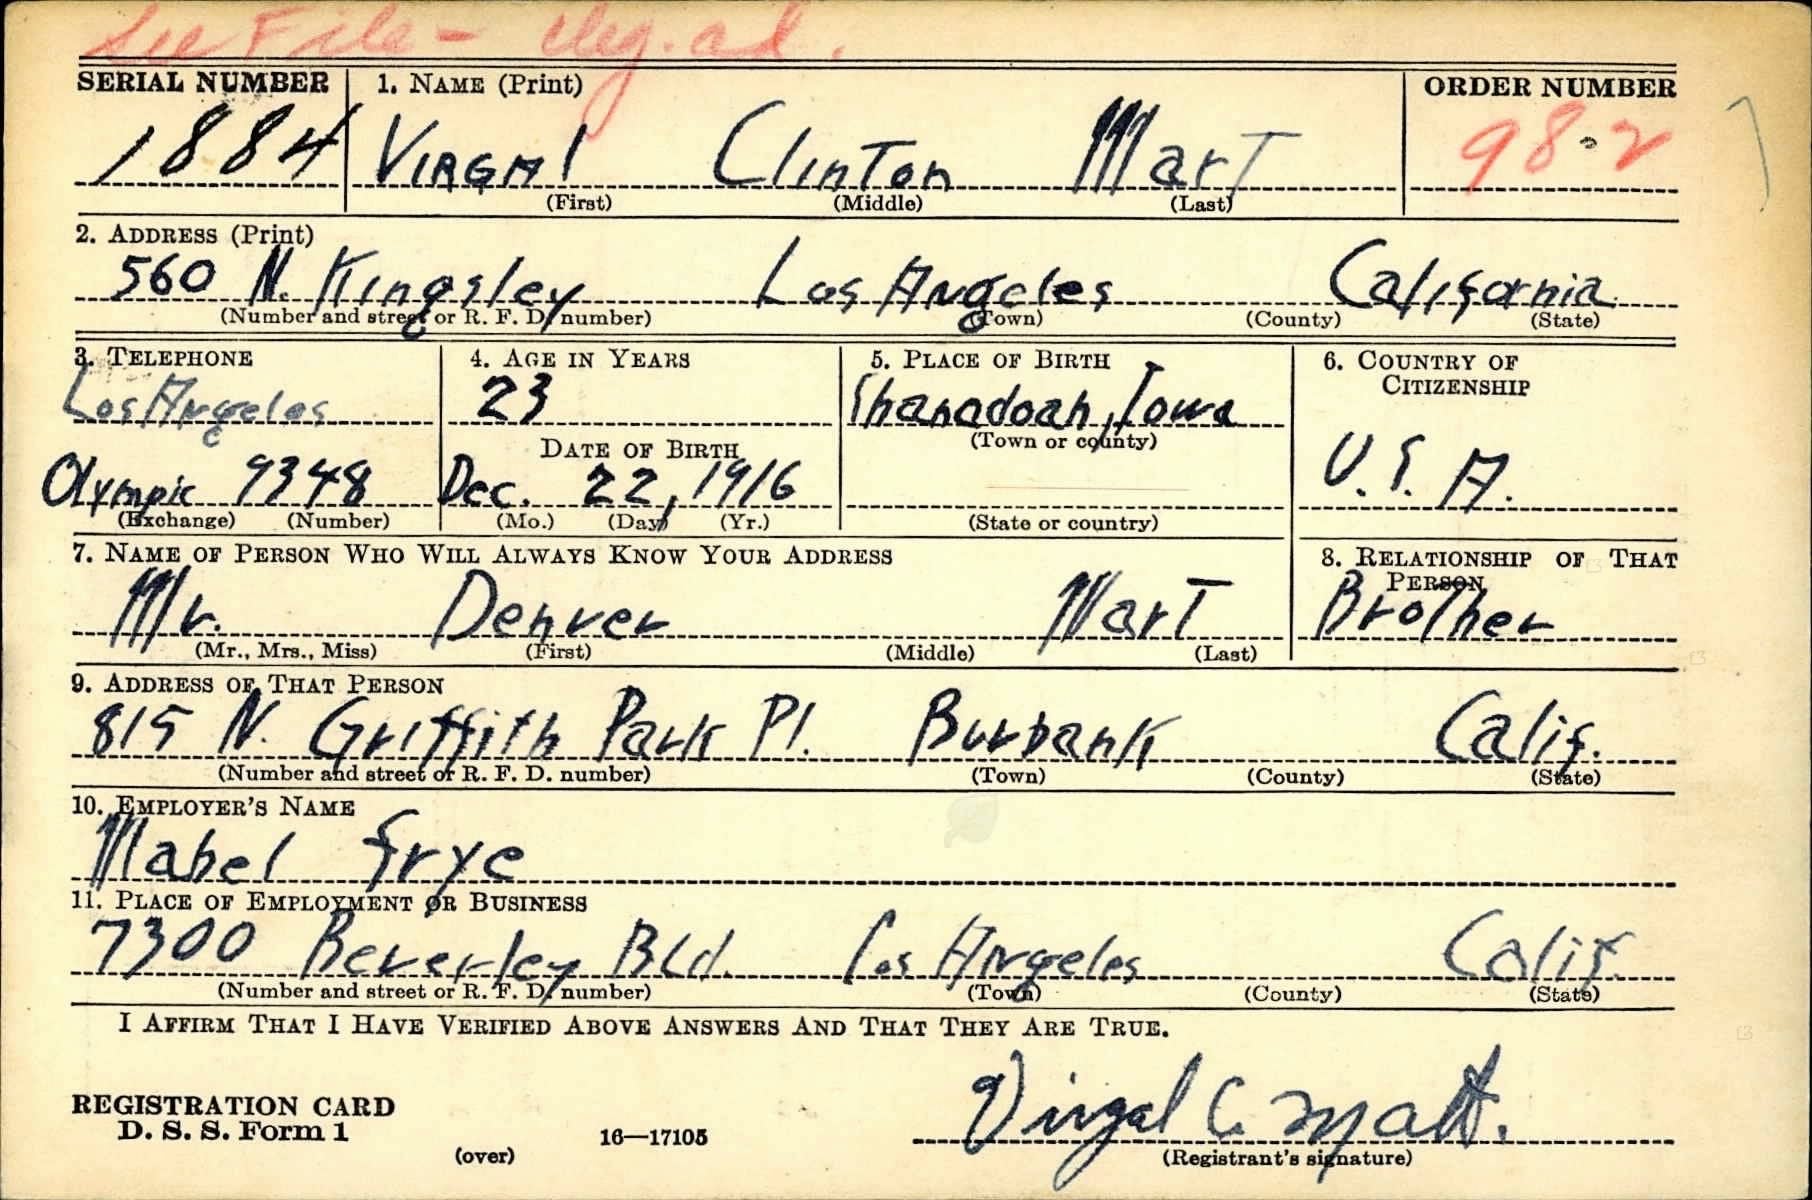 See File - 
SERIAL NUMBER 1. NAME (Print) ORDER NUMBER
1884 VIRGAl ClinTon MarT 982
(First) (Middle) (Last)
2. ADDRESS (Print)
560 N. Kingsley Los Angeles California
(Number and street or R. F. D. number) (Town) (County) (State)
3. TELEPHONE 4. AGE IN YEARS 5. PLACE OF BIRTH 6. COUNTRY OF CITIZENSHIP
Los Angeles 23 Shanadoah, Iowa
DATE OF BIRTH (Town or county)
Olympic 9348 Dec. 22, 1916 U.S.A.
(Exchange) (Number) (Mo.) (Day) (Yr.) (State or country)
7. NAME OF PERSON WHO WILL ALWAYS KNOW YOUR ADDRESS 8. RELATIONSHIP OF THAT PERSON
Mr. Denver MarT BroTher
(Mr., Mrs., Miss) (First) (Middle) (Last)
9. ADDRESS OF THAT PERSON
815 N. Griffith Park Pl. Burbank Calif.
(Number and street or R. F. D. number) (Town) (County) (State)
10. EMPLOYER'S NAME
Mabel Frye
11. PLACE OF EMPLOYMENT OR BUSINESS
7300 Beverley Bld. Los Angeles Calif.
(Number and street or R. F. D. number) (Town) (County) (State)
I AFFIRM THAT I HAVE VERIFIED ABOVE ANSWERS AND THAT THEY ARE TRUE.
REGISTRATION CARD
D. S. S. Form 1 16—17105 Virgal C. Mart.
(over) (Registrant's signature)